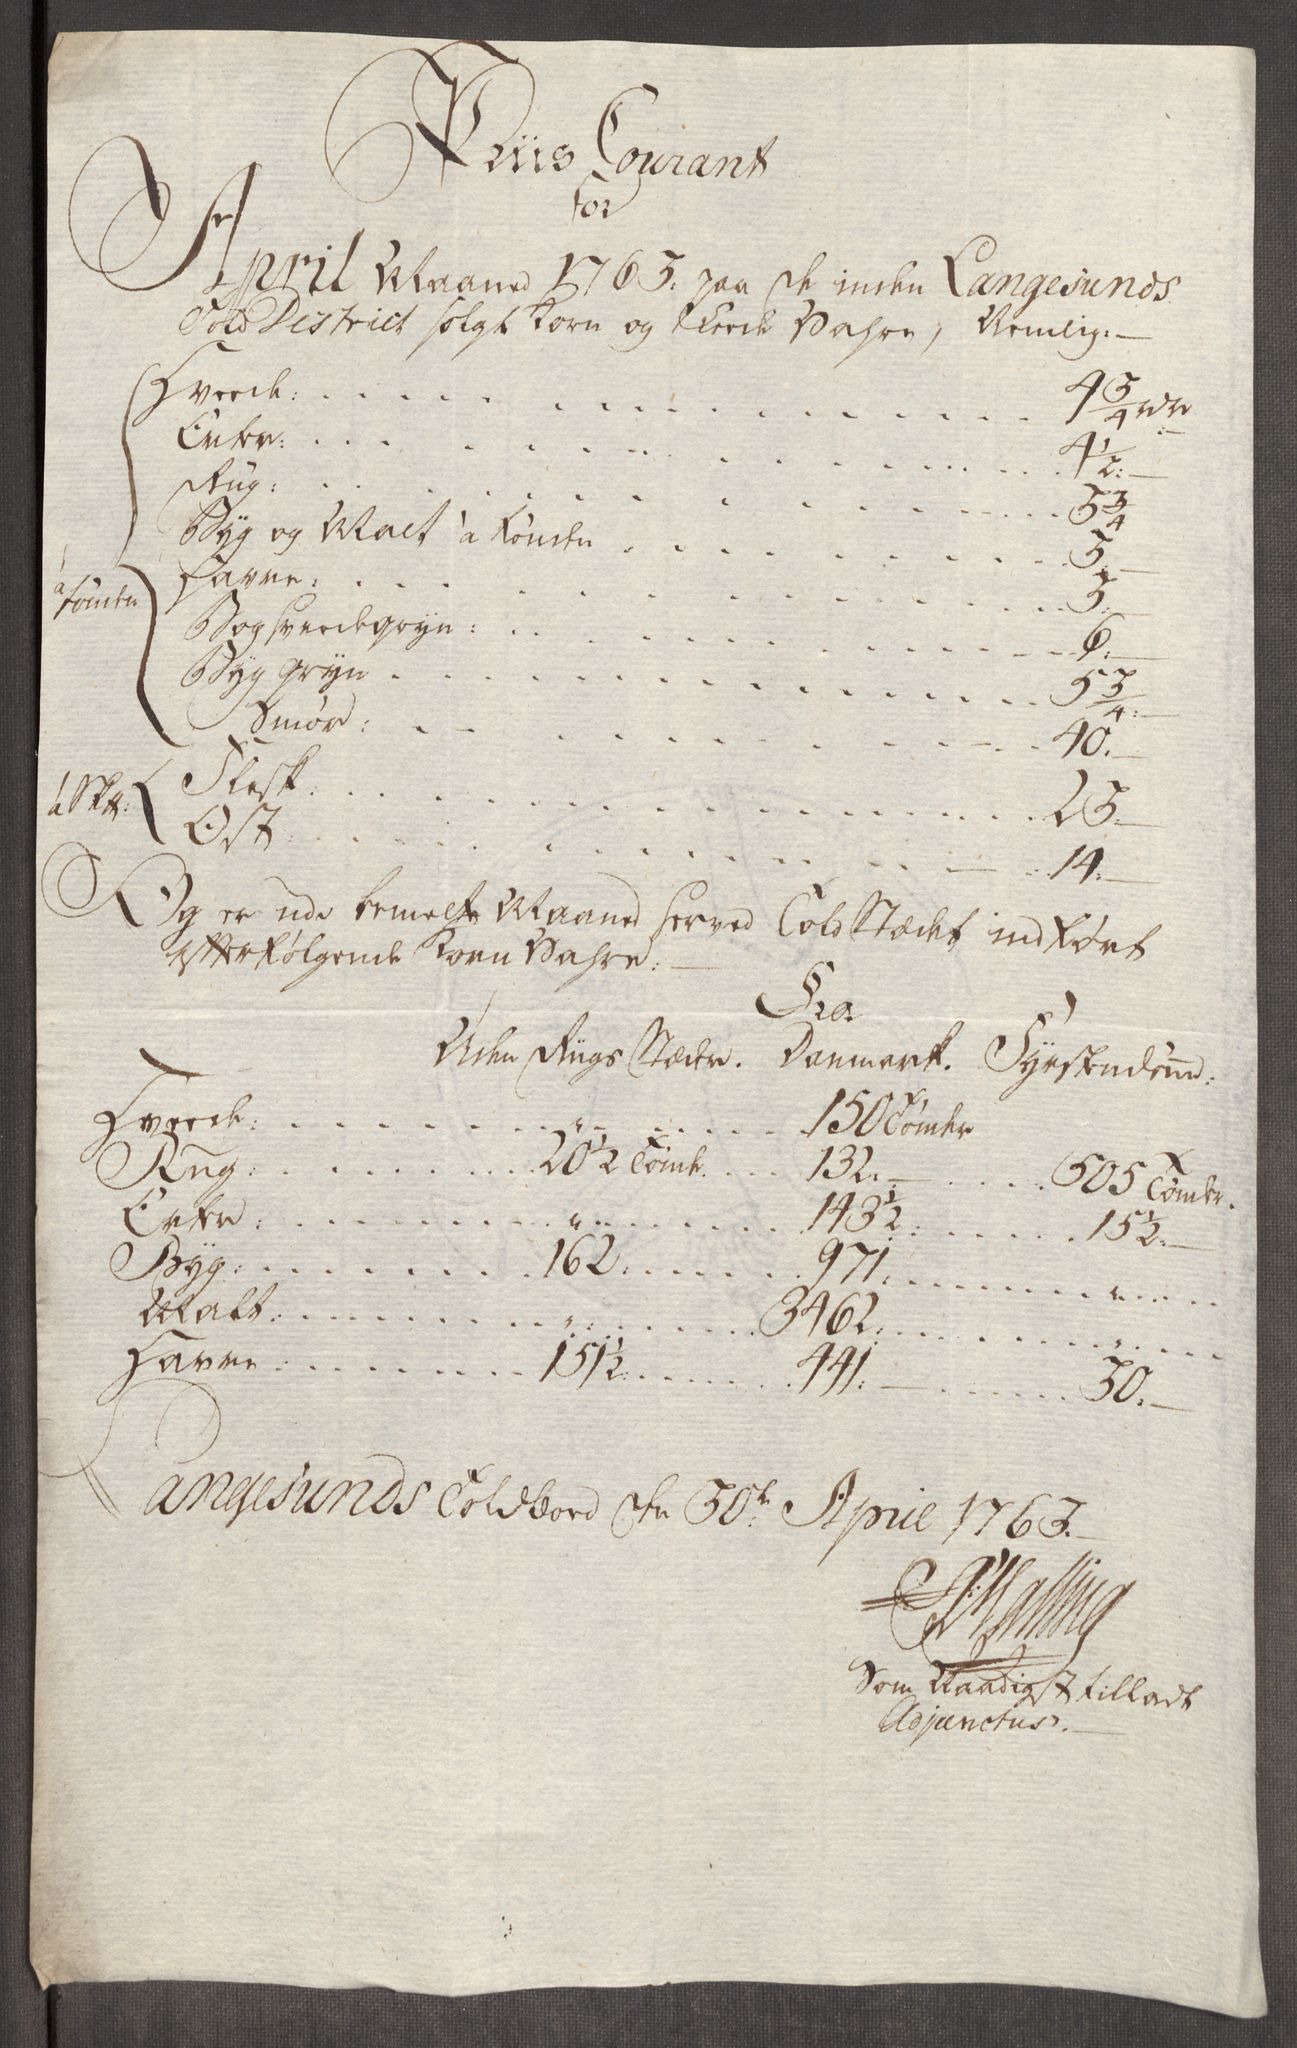 Priis Courant
for
April Maaned 1763. paa de inden Langesunds
Told District solgte Korn og Feede Vahre, Nemlig:
Hvede: 4 3/4 rdr
Erter: 4 1/2:
Rug: 3 3/4
Byg og Malt à Tønden 3:
à Tønden
Havre: 3:
Boghvedegryn: 6:
Byg gryn 5 3/4:
Smør: 40.
à Sk℔:
Flesk: 23:
Ost: 14:
Og er udi bemelte Maaned herved Told Stædet indført
efterfølgende Korn Vahre:
Fra
Uden Riigs Stæder. Danmark. Tydskland
Hvede: " 150 Tønder
Rug: 20 1/2 Tønde. 132: 505 Tønder.
Erter: " 143 1/2: 15 1/2:
Byg: 162: 971: "
Malt: " 3462: "
Havre 151 1/2: 441: 30:
Langesunds Toldbod den 30te April 1763.
Som Naadigst tilladt
Adjunctus.